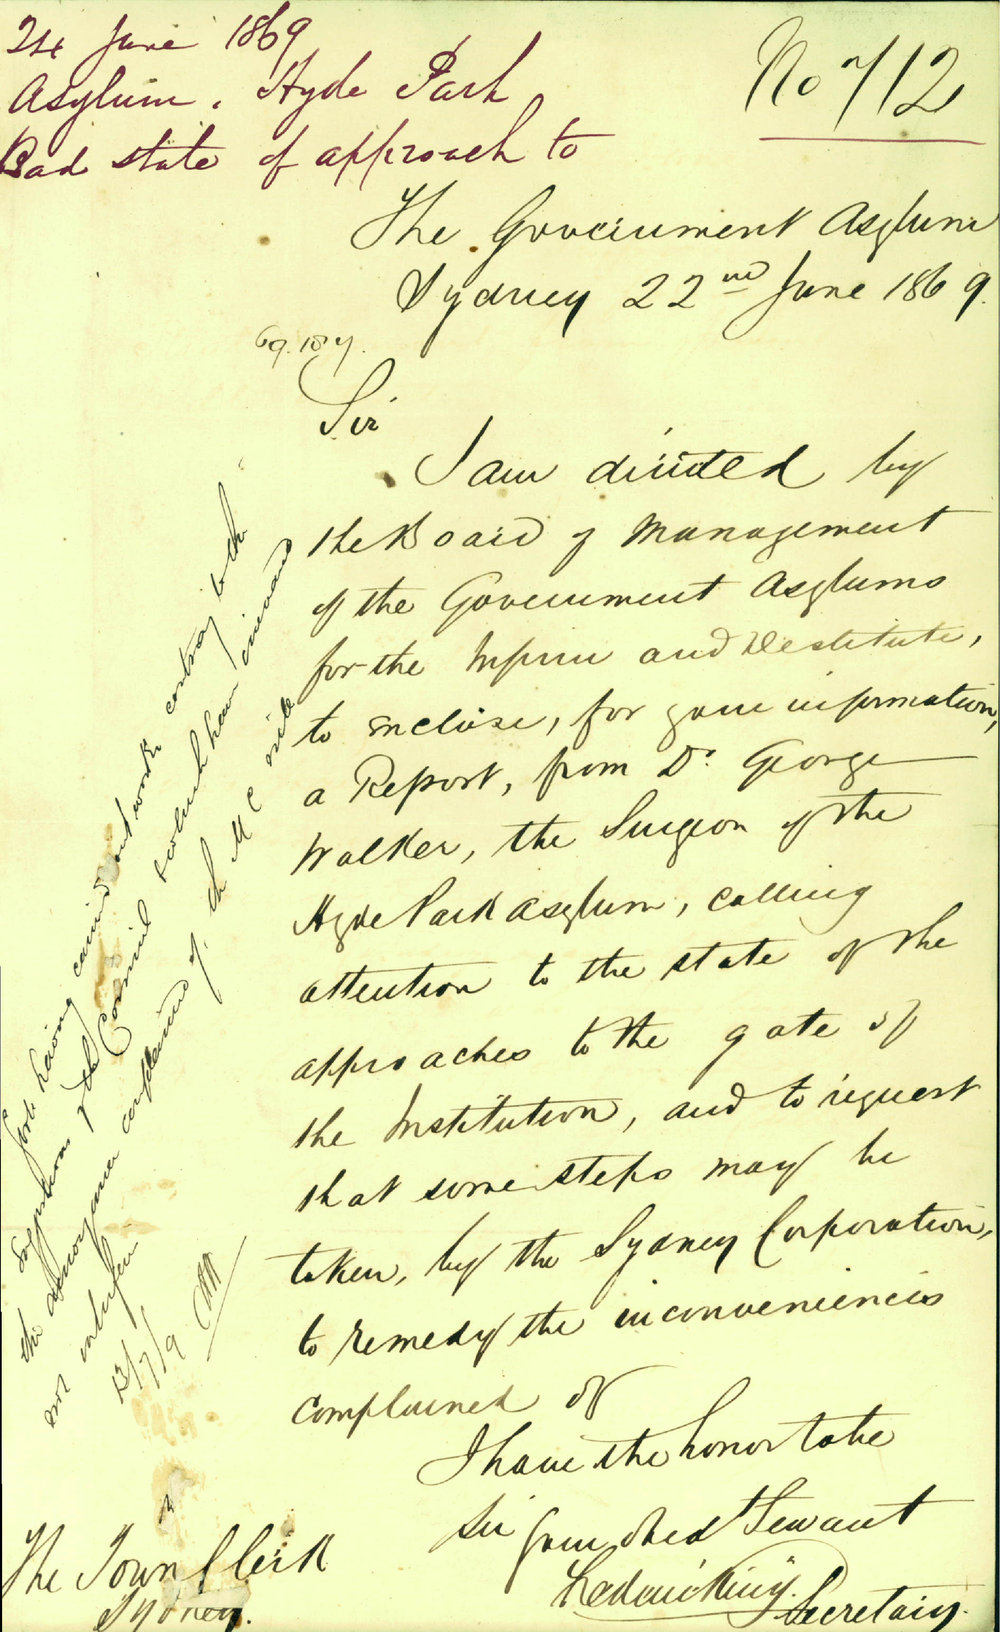 24 June 1869
Asylum, Hyde Park
Bad state of approach to
No 712
The Government Asylum
Sydney 22nd June 1869.
69.187.
Sir
I am directed by
the Board of Management
of the Government Asylums
for the Infirm and Destitute,
to enclose, for your information,
a Report, from Dr. George
Walker, the Surgeon of the
Hyde Park Asylum, calling
attention to the state of the
approaches to the gate of
the Institution, and to request
that some steps may be
taken, by the Sydney Corporation,
to remedy the inconveniencies
complained of
I have the honor to be
Sir
Your Obed Servant
Frederic King
Secretary.
The Town Clerk
Sydney.
Govt having carried out work contrary to the
of the Council which have
the annoyance complained of. the M C will
not interfere
13/7/9